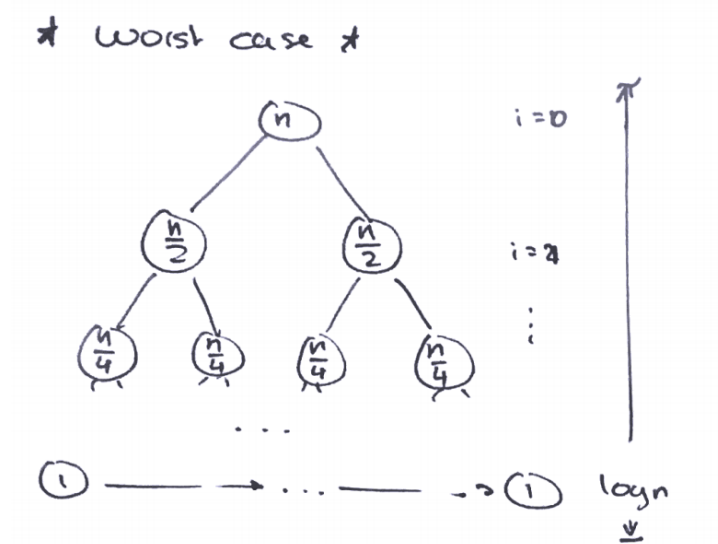 * worst case *
n i=0
n/2 n/2 i=1
n/4 n/4 n/4 n/4 ⋮
...
1 ... 1 logn